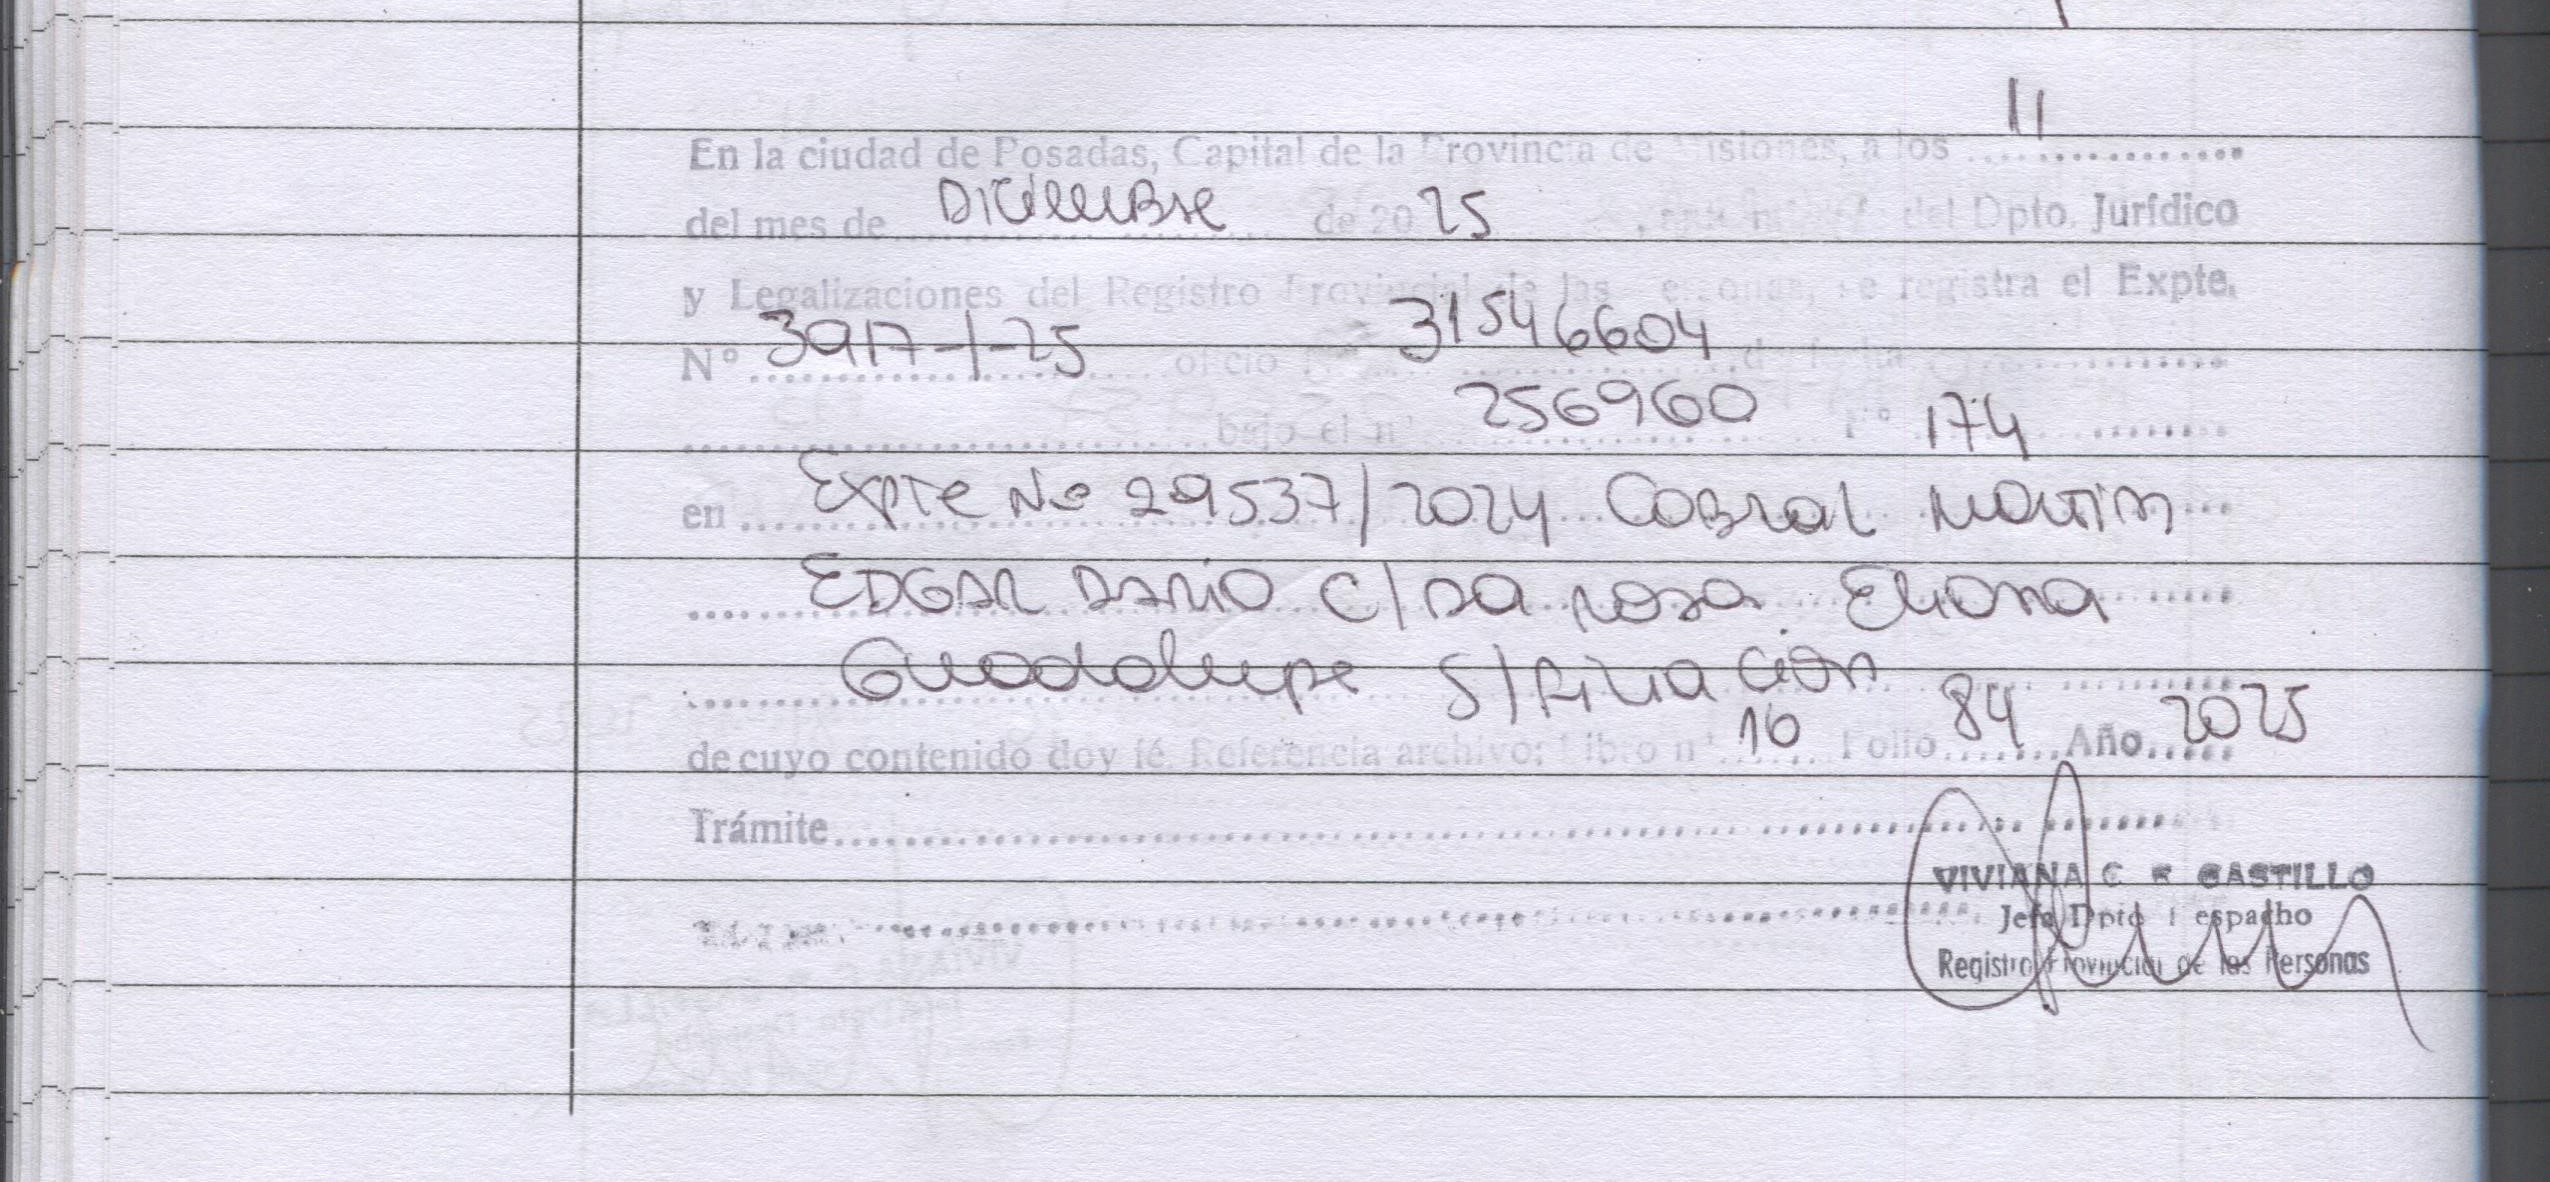 11
En la ciudad de Posadas, Capital de la Provincia de Misiones, a los ..............
del mes de DiciemBre de 2025 del Dpto. Jurídico
y Legalizaciones del Registro Provincial de las Personas, se registra el Expte.
N° 3917-1-25 oficio N° 31546604 de fecha ..............
bajo el n° 256960 F° 174
en Expte No 29537/2024 CoBral Martin
EDGAR DARIO C/ DA ROSA Eliana
Guadalupe S/Filiación
de cuyo contenido doy fé. Referencia archivo: Libro n° 16 Folio 84 Año 2025
Trámite..............
VIVIANA C CASTILLO
Jefa Dpto Despacho
Registro Provincial de las Personas